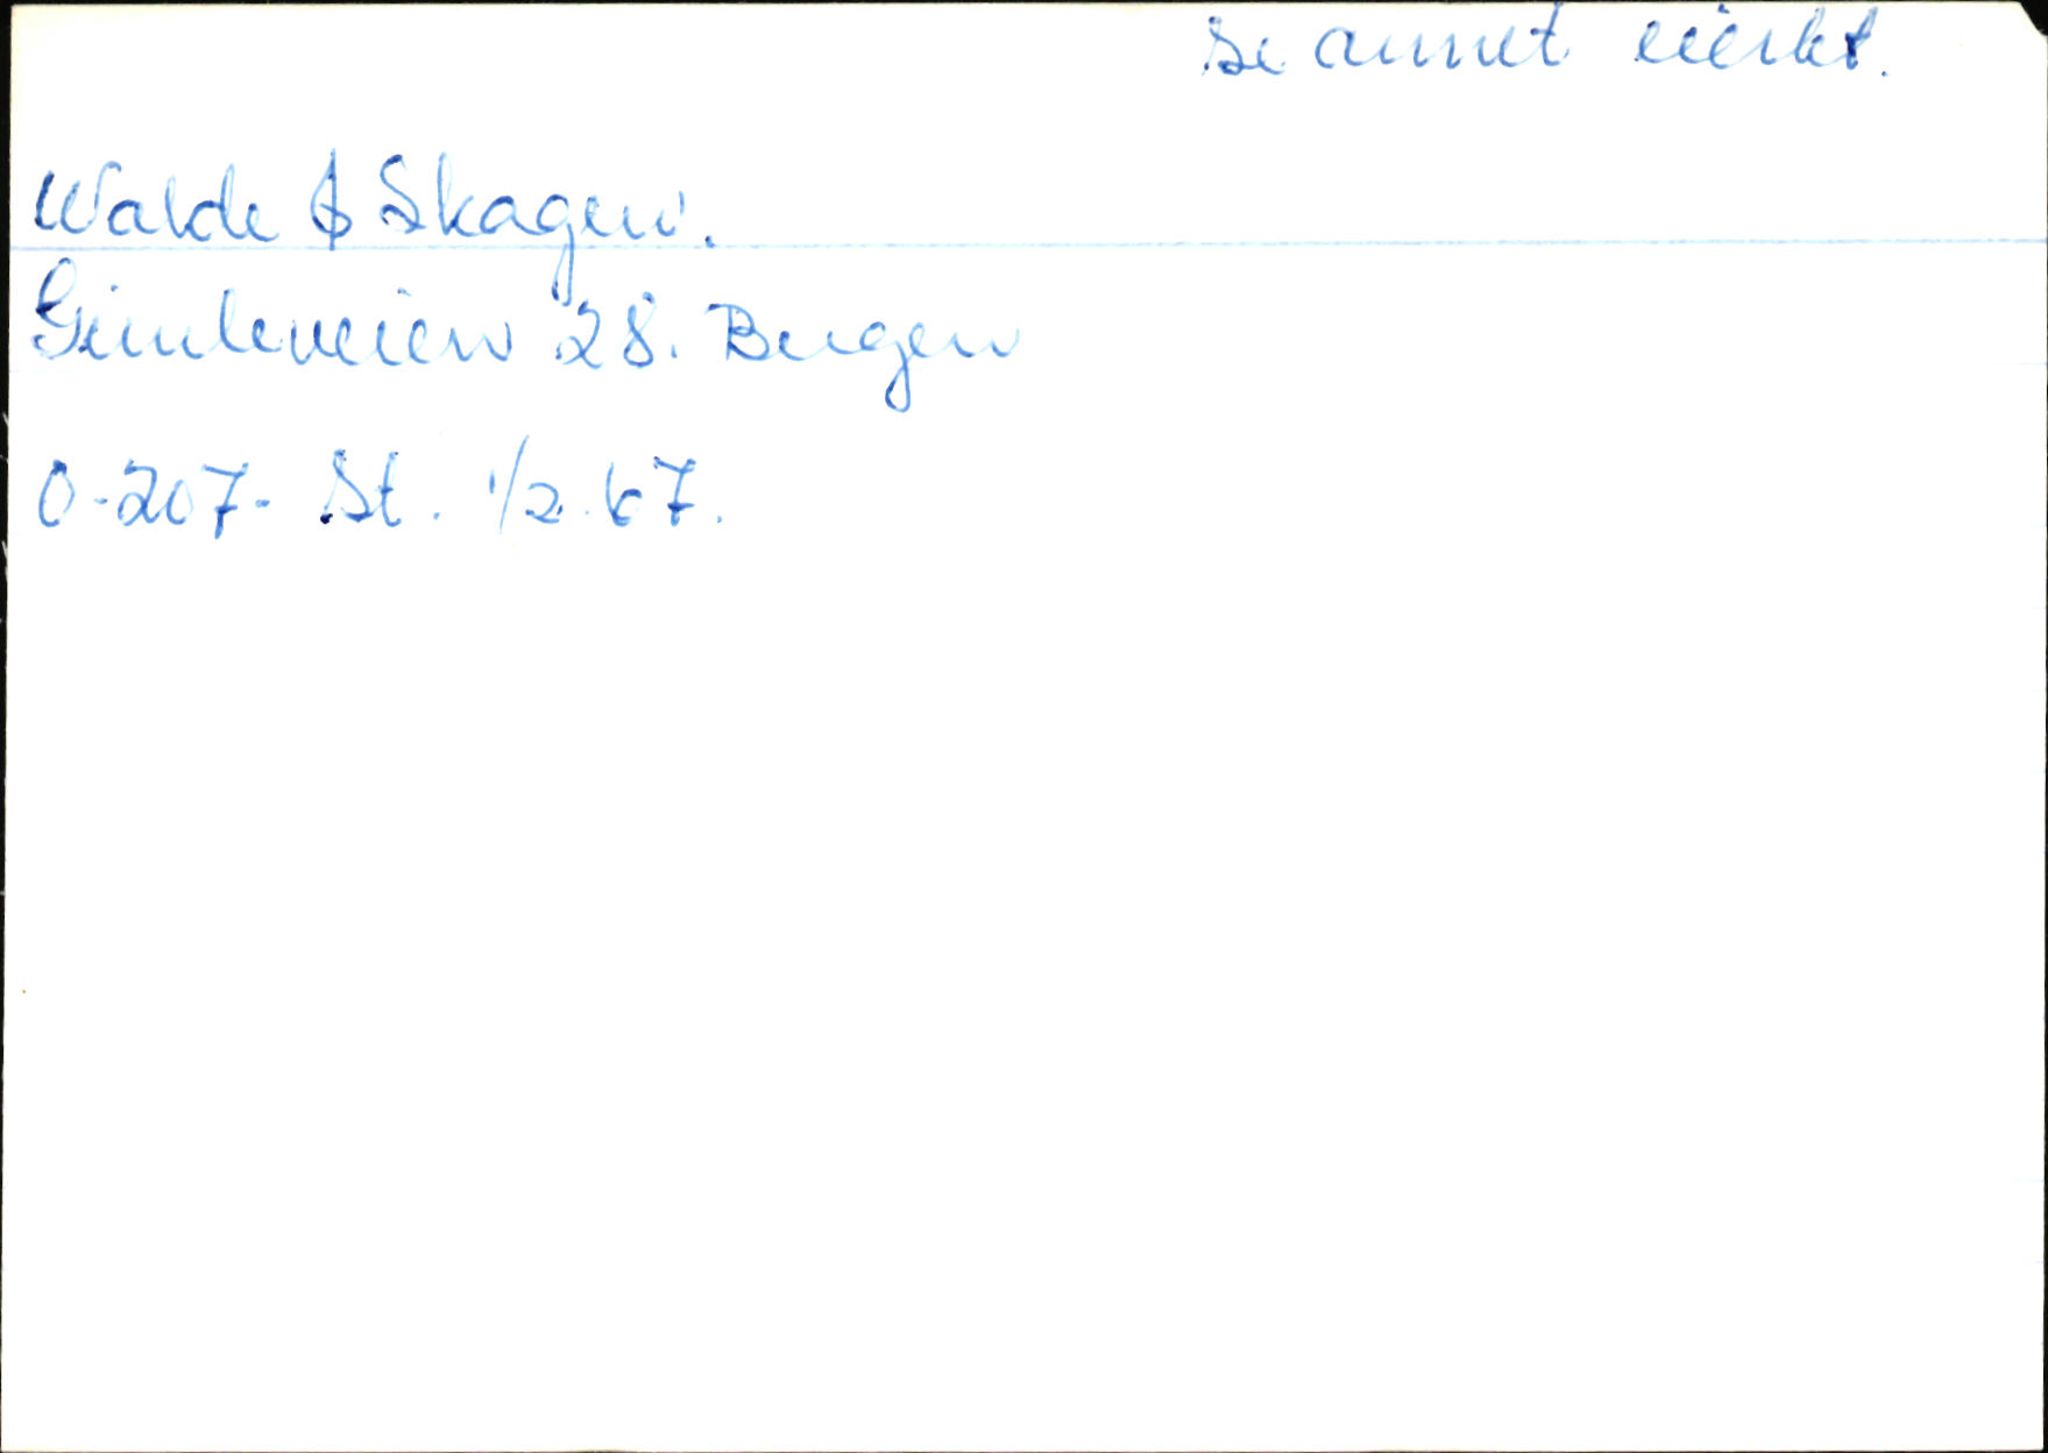 se annet eierkt.
Walde & Skagen.
Gimleveien 28. Bergen
O-207- St. 1/2.67.